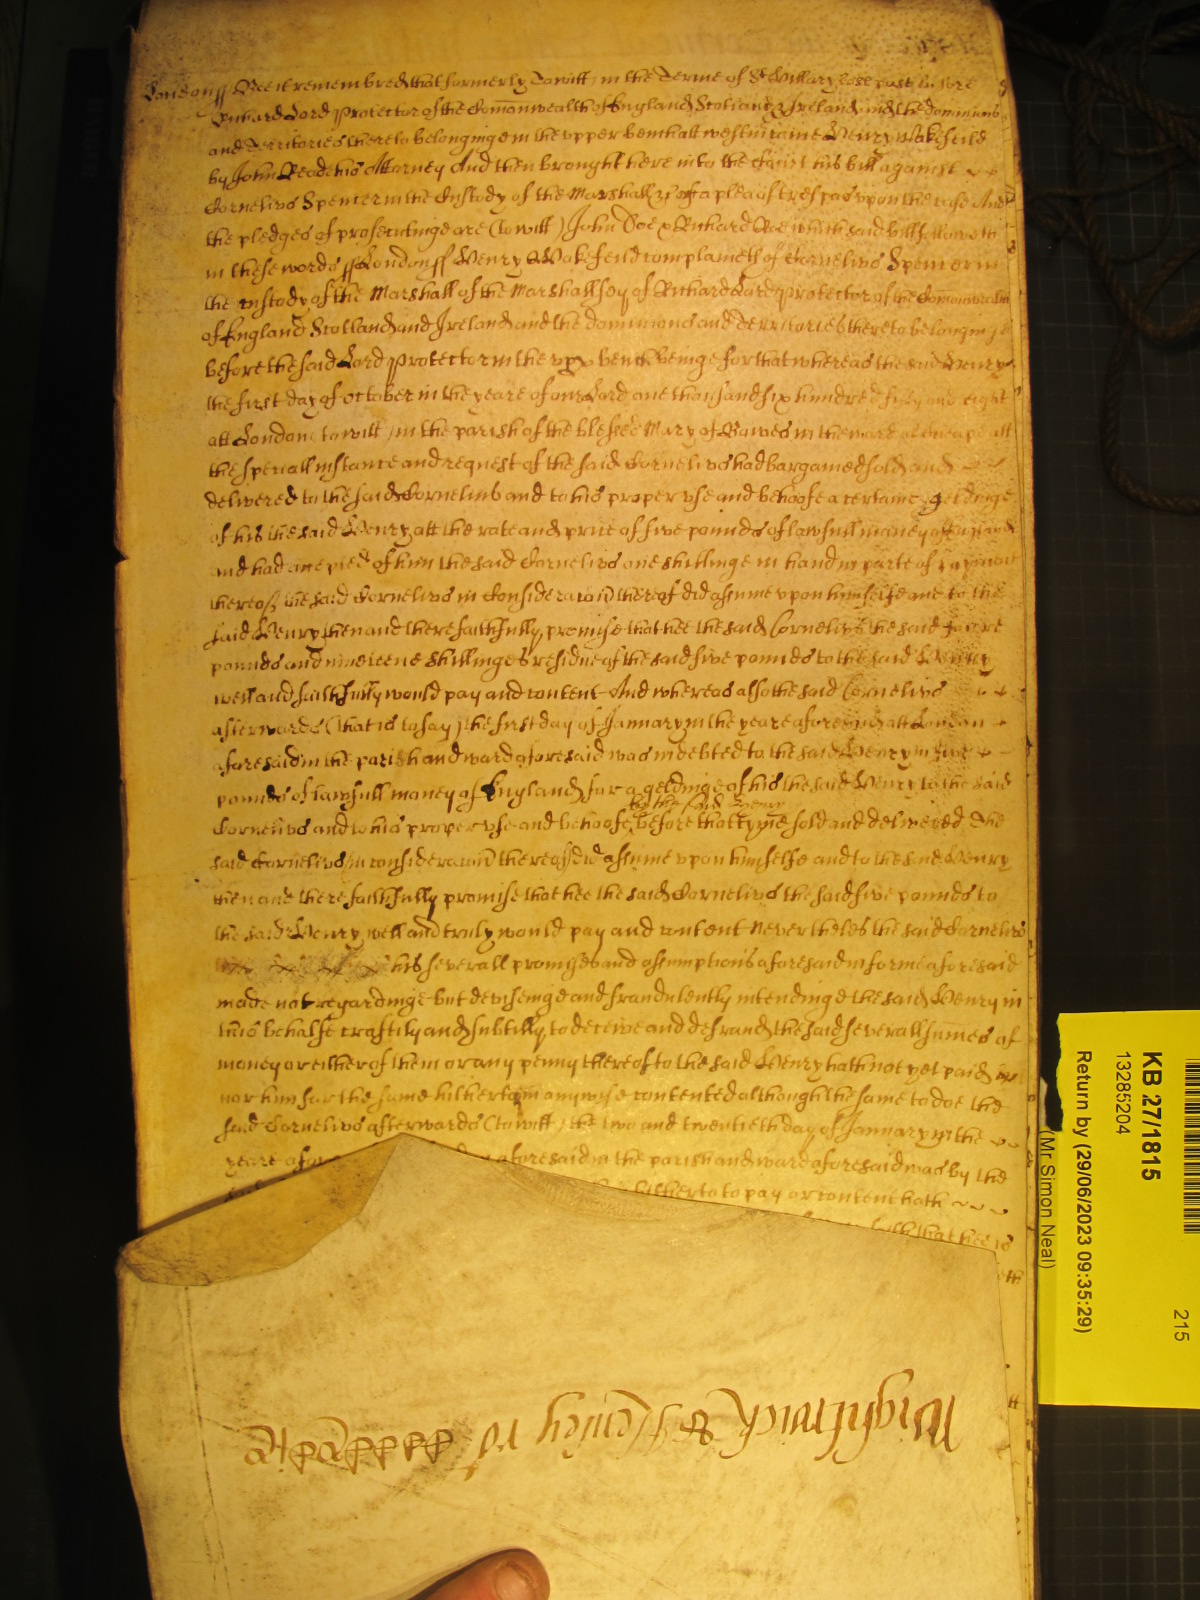 London ss Bee it remembred that formerly to witt in the Terme of St Hillary last past before
Richard Lord Protector of the Comonwealth of England Scotland & Ireland and the dominions
and Territories thereto belonginge in the vpper bench att Westm came Henry Wakefeild
by John Reade his Attorney And then brought here into the Court his bill against
Cornelivs Spencer in the Custody of the Marshall &c of a plea of trespas vpon the case And
the pledges of prosecutinge are (to witt) John Doe & Richard Roe which said bill followeth
in these words ss London ss Henry Wakefeild complaineth of Cornelivs Spencer in
the custody of the Marshall of the Marshallsey of Richard Lord Protector of the Comonwealth
of England Scotland and Ireland and the dominions and territories thereto belonginge
before the said Lord Protector in the vpp bench beinge for that whereas the said Henry
the first day of October in the yeare of our Lord one thousand six hundred fifty and eight
att London (to witt) in the parish of the blessed Mary of Bowes in the ward of Cheape att
the speciall instance and request of the said Cornelivs had bargained sold and
delivered to the said Cornelius and to his proper vse and behoofe a certaine geldinge
of his the said Henry att the rate and price of five pounds of lawfull money of England
and had of him the said Cornelivs one shillinge in hand in parte of payment
thereof the said Cornelivs in Consideracon thereof did assume vpon himselfe and to the
said Henry then and there faithfully promise that hee the said Cornelivs the said foure
pounds and nineteene shillinges residue of the said five pounds to the said Henry
well and faithfully would pay and content And whereas also the said Cornelivs
afterwards (that is to say) the first day of January in the yeare aforesaid att London
aforesaid in the parish and ward aforesaid was indebted to the said Henry in five
pounds of lawfull money of England for a geldinge of his the said Henry to the said
by the said Henry
Cornelivs and to his proper vse and behoofe before that tyme sold and delivered The
said Cornelivs in consideracon thereof did assume vpon himselfe and to the said Henry
then and there faithfully promise that hee the said Cornelivs the said five pounds to
the said Henry well and truly would pay and content Neverthelesse the said Cornelivs
his severall promises and assumptions aforesaid in forme aforesaid
made not regardinge but deviseinge and fraudulently intendinge the said Henry in
this behalfe craftily and subtilly to deceive and defraud the said severall sumes of
money or either of them or any penny thereof to the said Henry hath not yet paid
nor him for the same hitherto in anywise contented although the same to doe the
said Cornelivs afterwards (to witt) the two and twentieth day of January in the
yeare afore aforesaid in the parish and ward aforesaid was by the
hitherto to pay or content hath
saith that hee is
eth
KB 27/1815
13285204
Return by (29/06/2023 09:35:29)
(Mr Simon Neal)
215